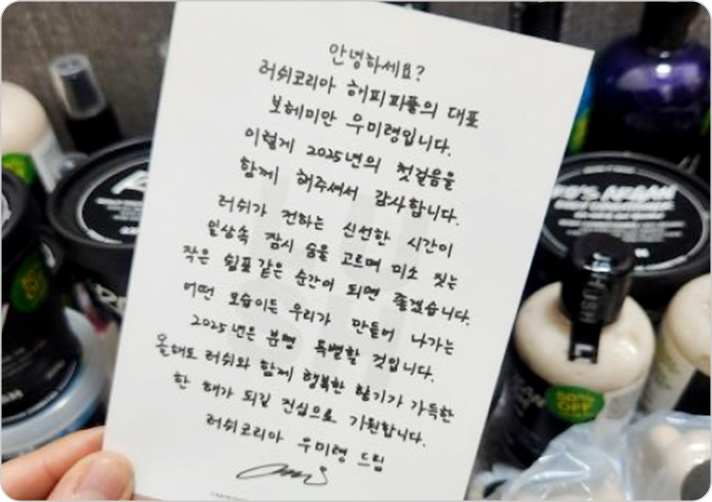 안녕하세요?
러쉬코리아 해피피플의 대표
보헤미안 우미령입니다.
이렇게 2025년의 첫걸음을
함께 해주셔서 감사합니다.
러쉬가 전하는 신선한 시간이
일상속 잠시 숨을 고르며 미소 짓는
작은 쉼표 같은 순간이 되면 좋겠습니다.
어떤 모습이든 우리가 만들어 나가는
2025년은 분명 특별할 것입니다.
올해도 러쉬와 함께 행복한 향기가 가득한
한 해가 되길 진심으로 기원합니다.
러쉬코리아 우미령 드림
50%
OFF